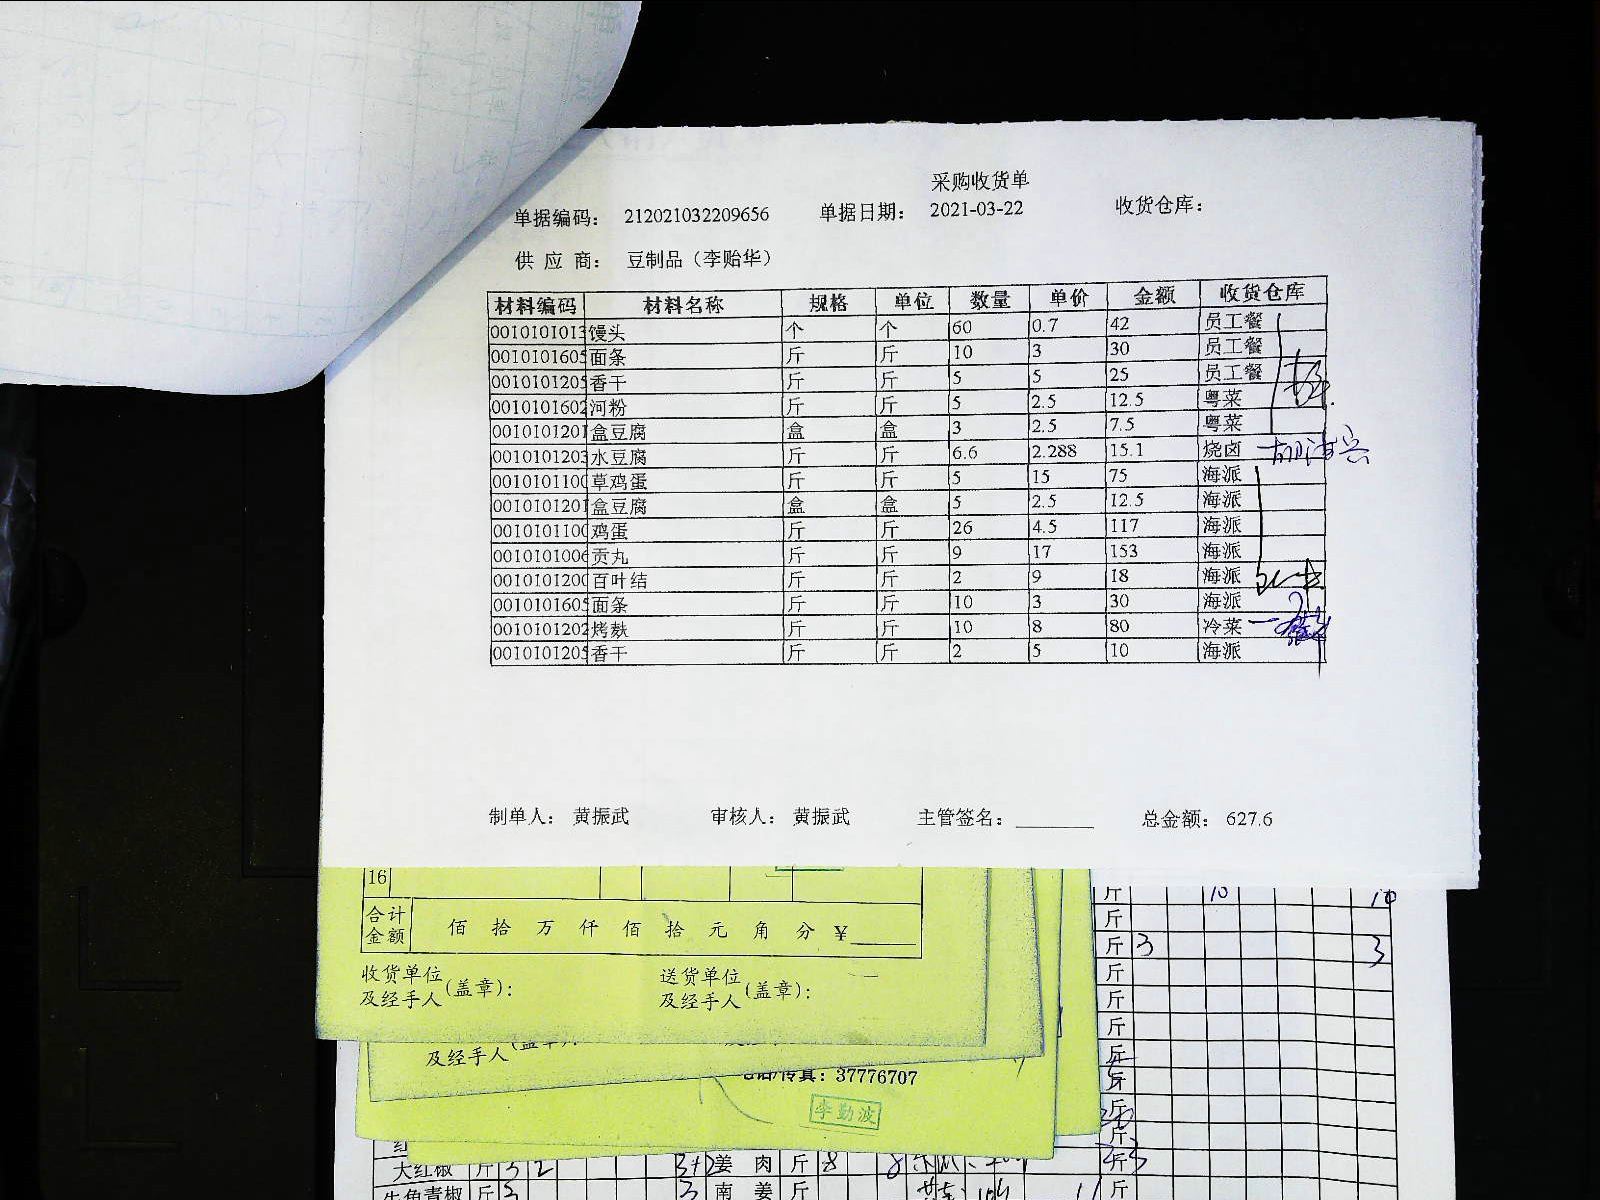 采购收货单
单据编码： 212021032209656 单据日期： 2021-03-22 收货仓库：
供 应 商： 豆制品（李贻华）
材料编码 材料名称 规格 单位 数量 单价 金额 收货仓库
0010101013 馒头 个 个 60 0.7 42 员工餐
0010101605 面条 斤 斤 10 3 30 员工餐
0010101205 香干 斤 斤 5 5 25 员工餐
0010101602 河粉 斤 斤 5 2.5 12.5 粤菜
0010101201 盒豆腐 盒 盒 3 2.5 7.5 粤菜
0010101203 水豆腐 斤 斤 6.6 2.288 15.1 烧卤
0010101100 草鸡蛋 斤 斤 5 15 75 海派
0010101201 盒豆腐 盒 盒 5 2.5 12.5 海派
0010101100 鸡蛋 斤 斤 26 4.5 117 海派
0010101006 贡丸 斤 斤 9 17 153 海派
0010101200 百叶结 斤 斤 2 9 18 海派
0010101605 面条 斤 斤 10 3 30 海派
0010101202 烤麸 斤 斤 10 8 80 冷菜
0010101205 香干 斤 斤 2 5 10 海派
制单人： 黄振武 审核人： 黄振武 主管签名： 总金额： 627.6
16
合计金额 佰 拾 万 仟 佰 拾 元 角 分 ¥
收货单位及经手人(盖章)： 送货单位及经手人(盖章)：
及经手人
传真：37776707
李勤波
斤 10 10
斤
斤 3 3
斤
斤
斤
大红椒 斤 姜 肉 斤 8 8
牛角青椒 斤 3 3 南 姜 斤 斤